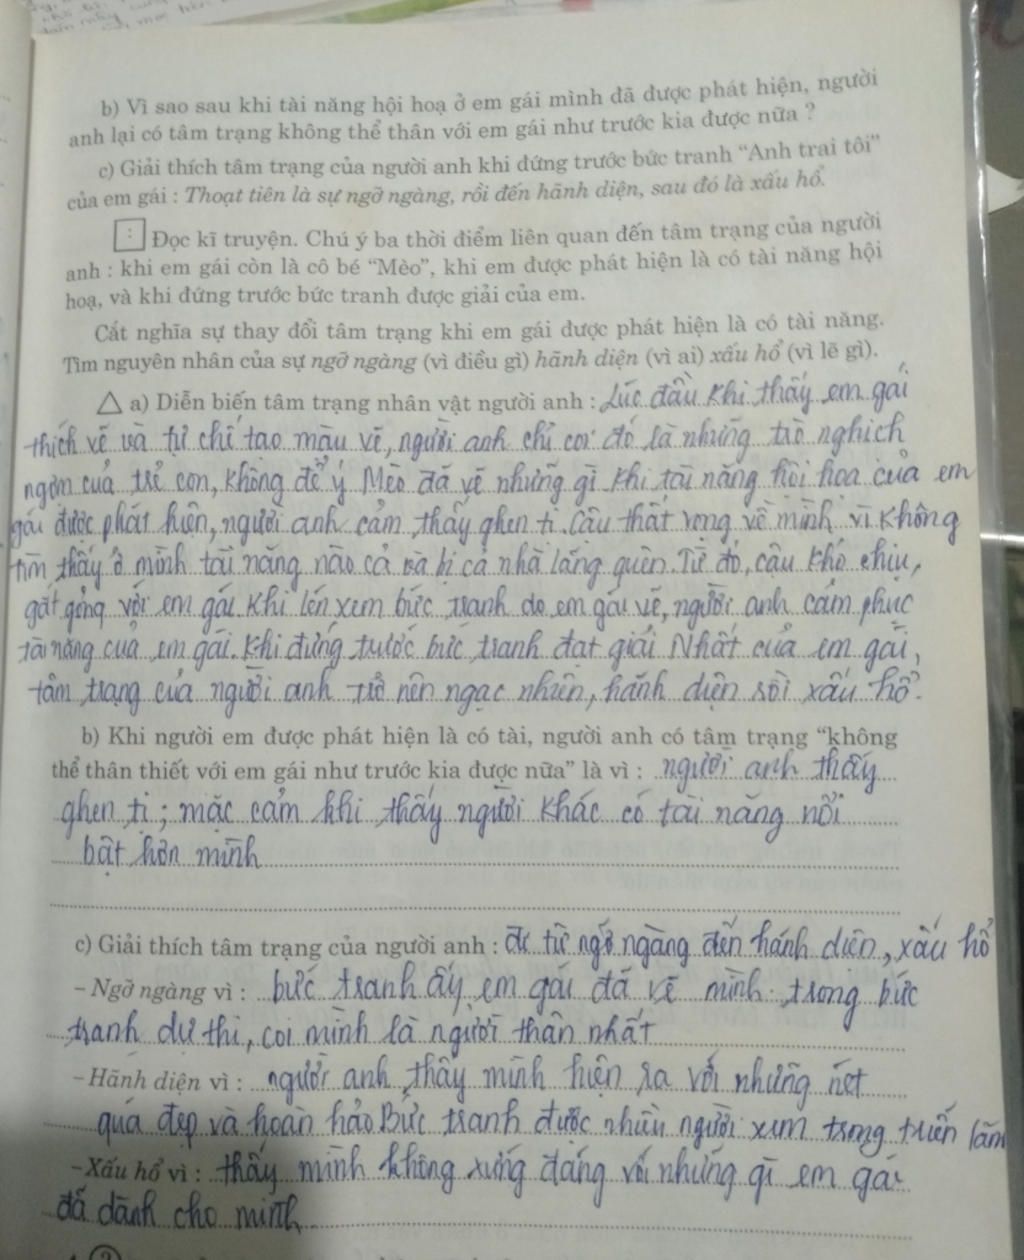 b) Vì sao sau khi tài năng hội hoạ ở em gái mình đã được phát hiện, người
anh lại có tâm trạng không thể thân với em gái như trước kia được nữa ?
c) Giải thích tâm trạng của người anh khi đứng trước bức tranh “Anh trai tôi”
của em gái : Thoạt tiên là sự ngỡ ngàng, rồi đến hãnh diện, sau đó là xấu hổ.
: Đọc kĩ truyện. Chú ý ba thời điểm liên quan đến tâm trạng của người
anh : khi em gái còn là cô bé “Mèo”, khi em được phát hiện là có tài năng hội
hoạ, và khi đứng trước bức tranh được giải của em.
Cắt nghĩa sự thay đổi tâm trạng khi em gái được phát hiện là có tài năng.
Tìm nguyên nhân của sự ngỡ ngàng (vì điều gì) hãnh diện (vì ai) xấu hổ (vì lẽ gì).
a) Diễn biến tâm trạng nhân vật người anh : Lúc đầu khi thấy em gái
thích vẽ và tự chế tạo màu vẽ, người anh chỉ coi đó là những trò nghịch
ngợm của trẻ con, không để ý Mèo đã vẽ những gì khi tài năng hội họa của em
gái được phát hiện, người anh cảm thấy ghen tị. Cậu thất vọng về mình vì không
tìm thấy ở mình tài năng nào cả và bị cả nhà lãng quên. Từ đó, cậu khó chịu,
gắt gỏng với em gái. Khi lén xem bức tranh do em gái vẽ, người anh cảm phục
tài năng của em gái. Khi đứng trước bức tranh đạt giải Nhất của em gái,
tâm trạng của người anh trở nên ngạc nhiên, hãnh diện rồi xấu hổ.
b) Khi người em được phát hiện là có tài, người anh có tâm trạng “không
thể thân thiết với em gái như trước kia được nữa” là vì : người anh thấy
ghen tị; mặc cảm khi thấy người khác có tài năng nổi
bật hơn mình
c) Giải thích tâm trạng của người anh : từ ngỡ ngàng đến hãnh diện, xấu hổ
- Ngỡ ngàng vì : bức tranh ấy em gái đã vẽ mình trong bức
tranh dự thi, coi mình là người thân nhất
- Hãnh diện vì : người anh thấy mình hiện ra với những nét
quá đẹp và hoàn hảo Bức tranh được nhiều người xem trong triển lãm
- Xấu hổ vì : thấy mình không xứng đáng với những gì em gái
đã dành cho mình